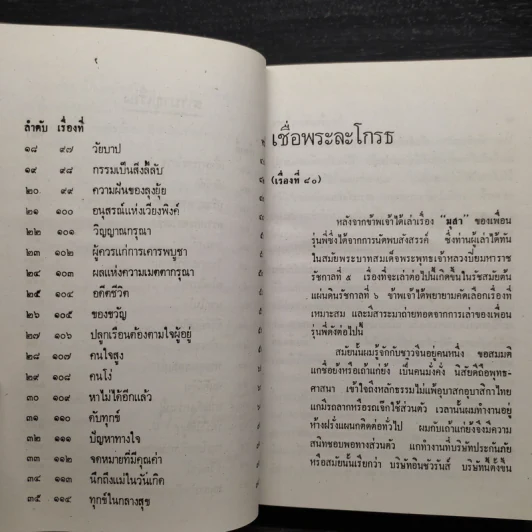 ลำดับ เรื่องที่
๑๘ ๙๗ วัยบาป
๑๙ ๙๘ กรรมเป็นสิ่งลี้ลับ
๒๐ ๙๙ ความฝันของลุงยุ้ย
๒๑ ๑๐๐ อนุสรณ์แห่งเวียงพิงค์
๒๒ ๑๐๑ วิญญาณกรุณา
๒๓ ๑๐๒ ผู้ควรแก่การเคารพบูชา
๒๔ ๑๐๓ ผลแห่งความเมตตากรุณา
๒๕ ๑๐๔ อดีตชีวิต
๒๖ ๑๐๕ ของขวัญ
๒๗ ๑๐๖ ปลูกเรือนต้องตามใจผู้อยู่
๒๘ ๑๐๗ คนใจสูง
๒๙ ๑๐๘ คนโง่
๓๐ ๑๐๙ หาไม่ได้อีกแล้ว
๓๑ ๑๑๐ ดับทุกข์
๓๒ ๑๑๑ ปัญหาทางใจ
๓๓ ๑๑๒ จดหมายที่มีคุณค่า
๓๔ ๑๑๓ นึกถึงแม่ในวันเกิด
๓๕ ๑๑๔ ทุกข์ในกลางสุข
เชื่อพระละโกรธ
(เรื่องที่ ๘๐)
หลังจากข้าพเจ้าได้เล่าเรื่อง "มุสา" ของเพื่อน
รุ่นพี่ซึ่งได้จากการนัดพบสังสรรค์ ซึ่งท่านผู้เล่าได้ทัน
ในสมัยพระบาทสมเด็จพระพุทธเจ้าหลวงปิยมหาราช
รัชกาลที่ ๕ เรื่องที่จะเล่าต่อไปนี้เกิดขึ้นในรัชสมัยต้น
แผ่นดินรัชกาลที่ ๖ ข้าพเจ้าได้พยายามคัดเลือกเรื่องที่
เหมาะสม และมีสาระมาถ่ายทอดจากการเล่าของเพื่อน
รุ่นพี่ดังต่อไปนี้
สมัยนั้นผมรู้จักกับชาวจีนอยู่คนหนึ่ง ขอสมมติ
แกชื่อยังหรือเถ้าแก่ยัง เป็นคนมั่งคั่ง นิสัยดีถือพุทธ-
ศาสนา เข้าใจถึงหลักธรรมไม่แพ้อุบาสกอุบาสิกาไทย
แกมีรถลากหรือรถเจ๊กใช้ส่วนตัว เวลานั้นผมทำงานอยู่
ห้างฝรั่งแผนกติดต่อทั่วไป ผมกับเถ้าแก่ยังจึงมีความ
สนิทชอบพอทางส่วนตัว แกทำงานที่บริษัทประกันภัย
หรือสมัยนั้นเรียกว่า บริษัทอินชัวรันส์ บริษัทนี้ตั้งขึ้น